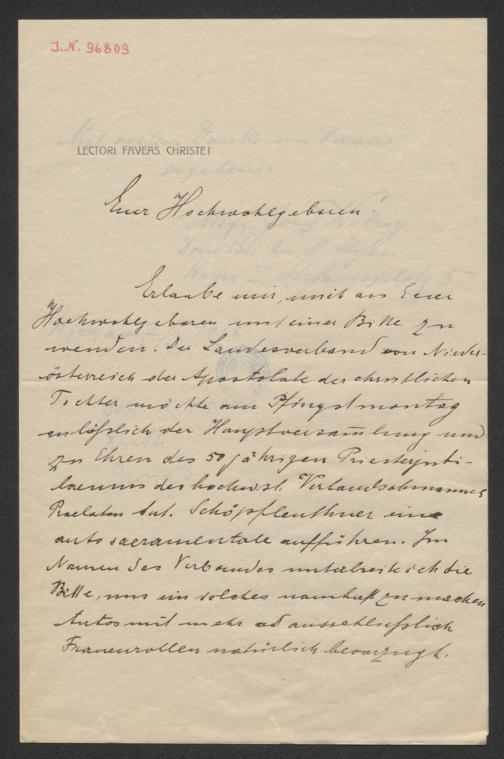 J.N. 96809
LECTORI FAVEAS CHRISTE!
Euer Hochwohlgeboren!
Erlaube mir, mit an Euer
Hochwohlgeboren mit einer Bitte zu
wenden. Der Landesverband von Nieder-
österreich der Apostolate der christlichen
Töchter möchte am Pfingstmontag
anläßlich der Hauptversammlung und
zu Ehren des 50 jährigen Priesterjubi-
laeums des hochwst. Verbandsobmannes
Praelaten Ant. Schöpfleuthner ein
auto sacramentale aufführen. Im
Namen des Verbandes unterbreite ich die
Bitte, uns ein solches namhaft zu machen
Autos mit mehr od ausschließlich
Frauenrollen natürlich bevorzugt.